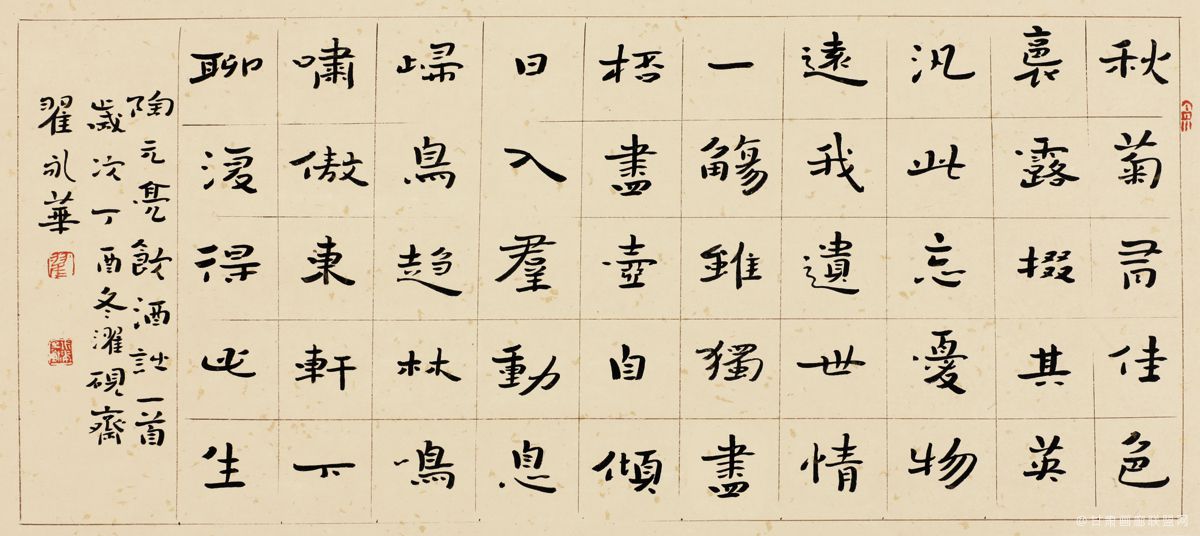 秋菊有佳色
裛露掇其英
汎此忘憂物
遠我遺世情
一觴雖獨盡
桮盡壺自傾
日入羣動息
歸鳥趨林鳴
嘯傲東軒下
聊復得此生
陶元亮飲酒詩一首
歲次丁酉冬濯硯齋
翟永華
@甘肃画廊联盟网